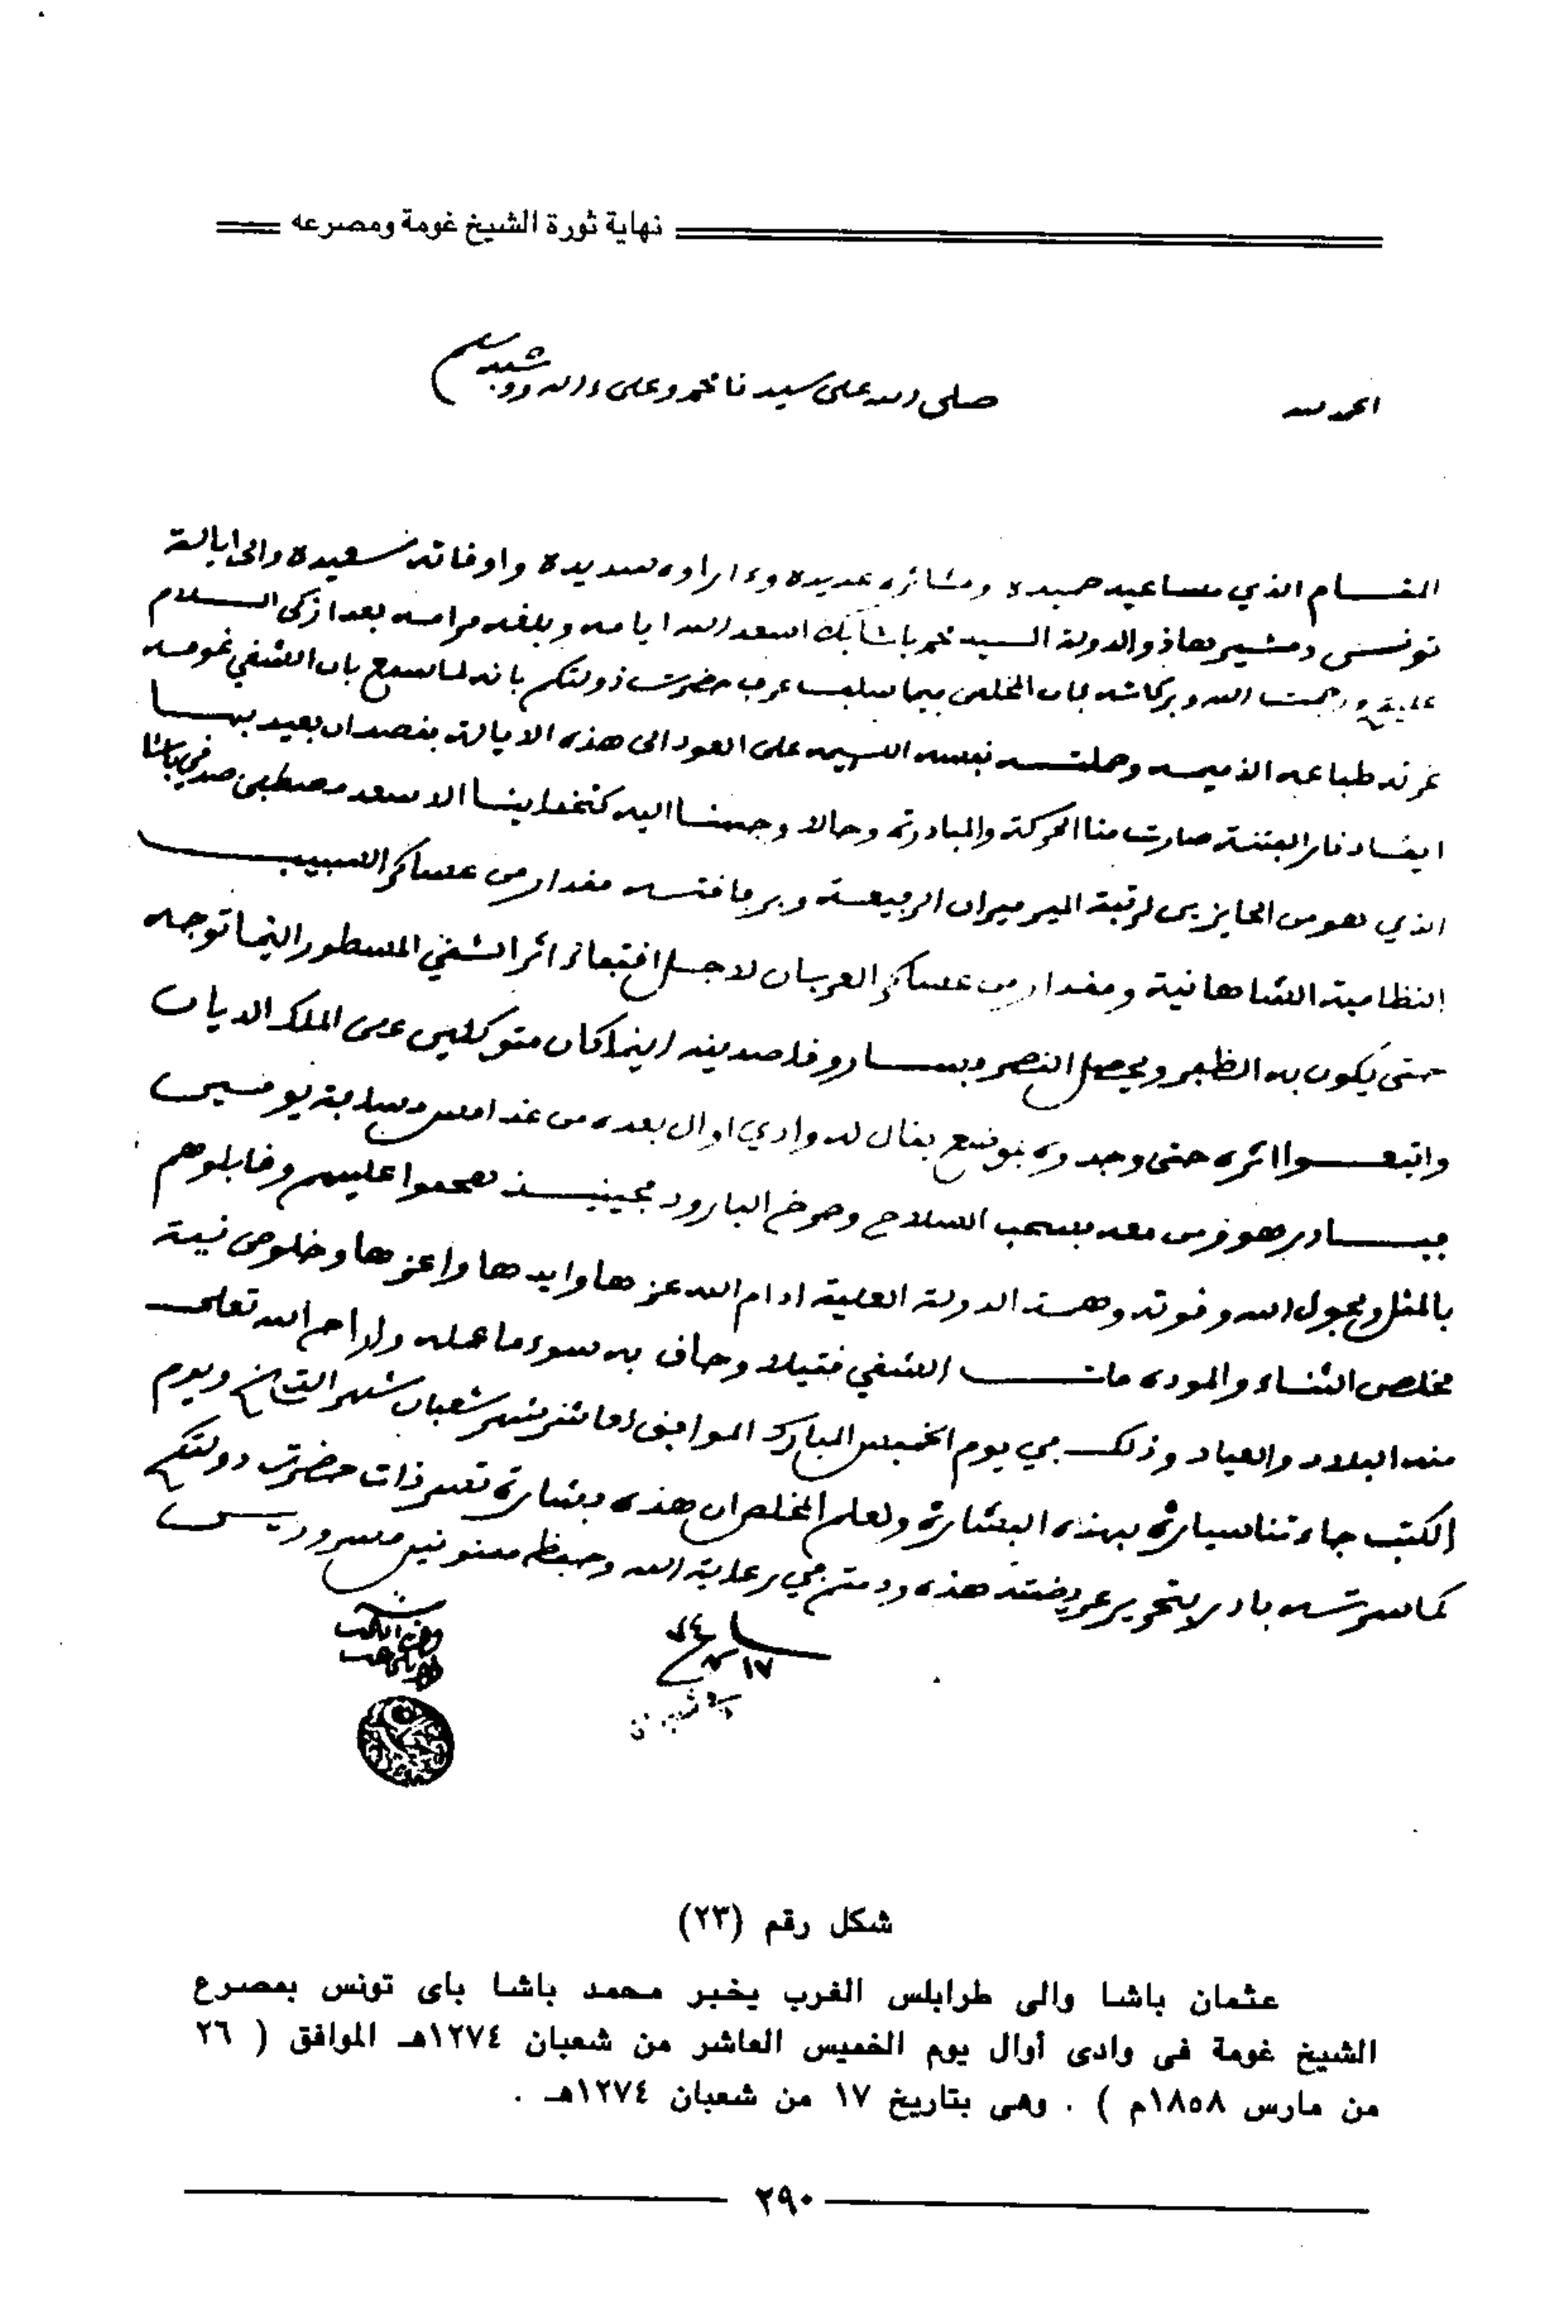 نهاية ثورة الشيخ غومة ومصرعه
الحمد لله
صلى الله على سيدنا محمد وعلى ءاله وسلم
المقام الذي مساعيه حميده ومئاثره عديده وءاراوه سديدة واوقاته سعيدة والى ايالة
تونس ومشيرها ذو الدولة السيد محمد باشا بك اسعد الله ايامه وبلغه مرامه بعد ازكى السلام
عليكم ورحمت الله وبركاته فان المخلص فيما سلف عرف حضرت دولتكم بانه لما سمع بان الشفي غومه
غرته طباعه الذميمه وحملته نفسه اللئيمه على العود الى هذه الايالة بقصد ان يعيد بها
ايقاد نار الفتنة صارت منا الحركة والمبادرة وحالا وجهنا اليه كتخداينا الاسعد مصطفى صدقي باشا
الذي هو من الحايزين لرتبة المير ميران الرفيعة وبرفاقته مقدار من عساكر السبب
النظامية الشاهانية ومقدار من عساكر العربان لاجل اقتفاء اثر الشفي المسطور اينما توجه
حتى يكون به الظفر ويحصل النصر فساروا قاصدينه اينما كان متوكلين على الملك الديان
واتبعوا اثره حتى وجدوه بموضع يقال له وادي اوال بعده من غدامس مسافة يومين
فبادر هو ومن معه بسحب السلاح وصرف البارود فحينيذ هجموا عليهم وقابلوهم
بالمثل وبحول الله وقوته وهمة الدولة العلية ادام الله عزها وايدها واعزها وخلوص نية
مخلص الثناء والموده مات الشفي قتيلا وحاق به سوء ما عمله واراح الله تعلى
منه البلاد والعباد وذلك في يوم الخميس المبارك الموافق لعاشر شهر شعبان شهر التاريخ ويوم
الكتب جاءتنا سيارة بهذه البشارة ولعلم المخلص ان هذه بشارة تسر ذات حضرت دولتكم
كما سرته بادر لتحرير عريضته هذه ودمتم في رعاية الله وحفظه ممنونين مسرورين
١٧
شكل رقم (٢٣)
عثمان باشا والى طرابلس الغرب يخبر محمد باشا باى تونس بمصرع
الشيخ غومة فى وادى أوال يوم الخميس العاشر من شعبان ١٢٧٤هـ الموافق ( ٢٦
من مارس ١٨٥٨م ) . وهى بتاريخ ١٧ من شعبان ١٢٧٤هـ .
٢٩٠